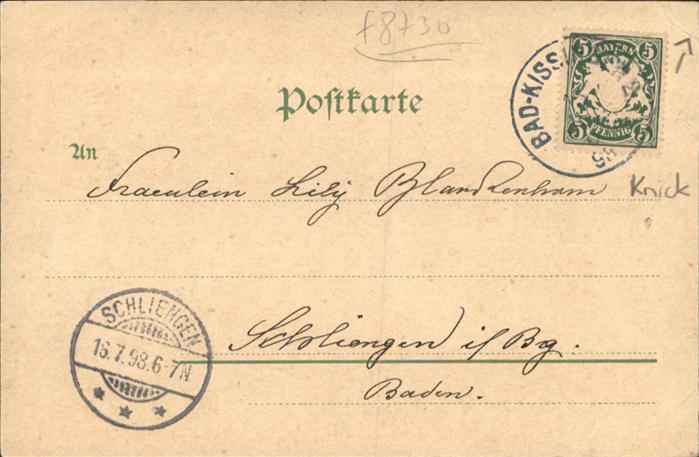 f8730
5 BAYERN 5
5 PFENNIG 5
BAD-KISS
Postkarte
An
Fraeulein Lily Blankenham
Knick
SCHLIENGEN
16.7.98.6-7N
Schliengen i/Bg.
Baden.